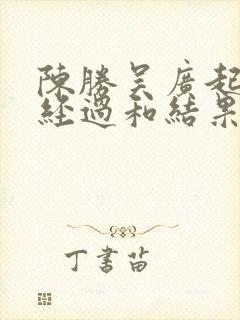 陳勝吴廣起
經過和結果
丁書苗